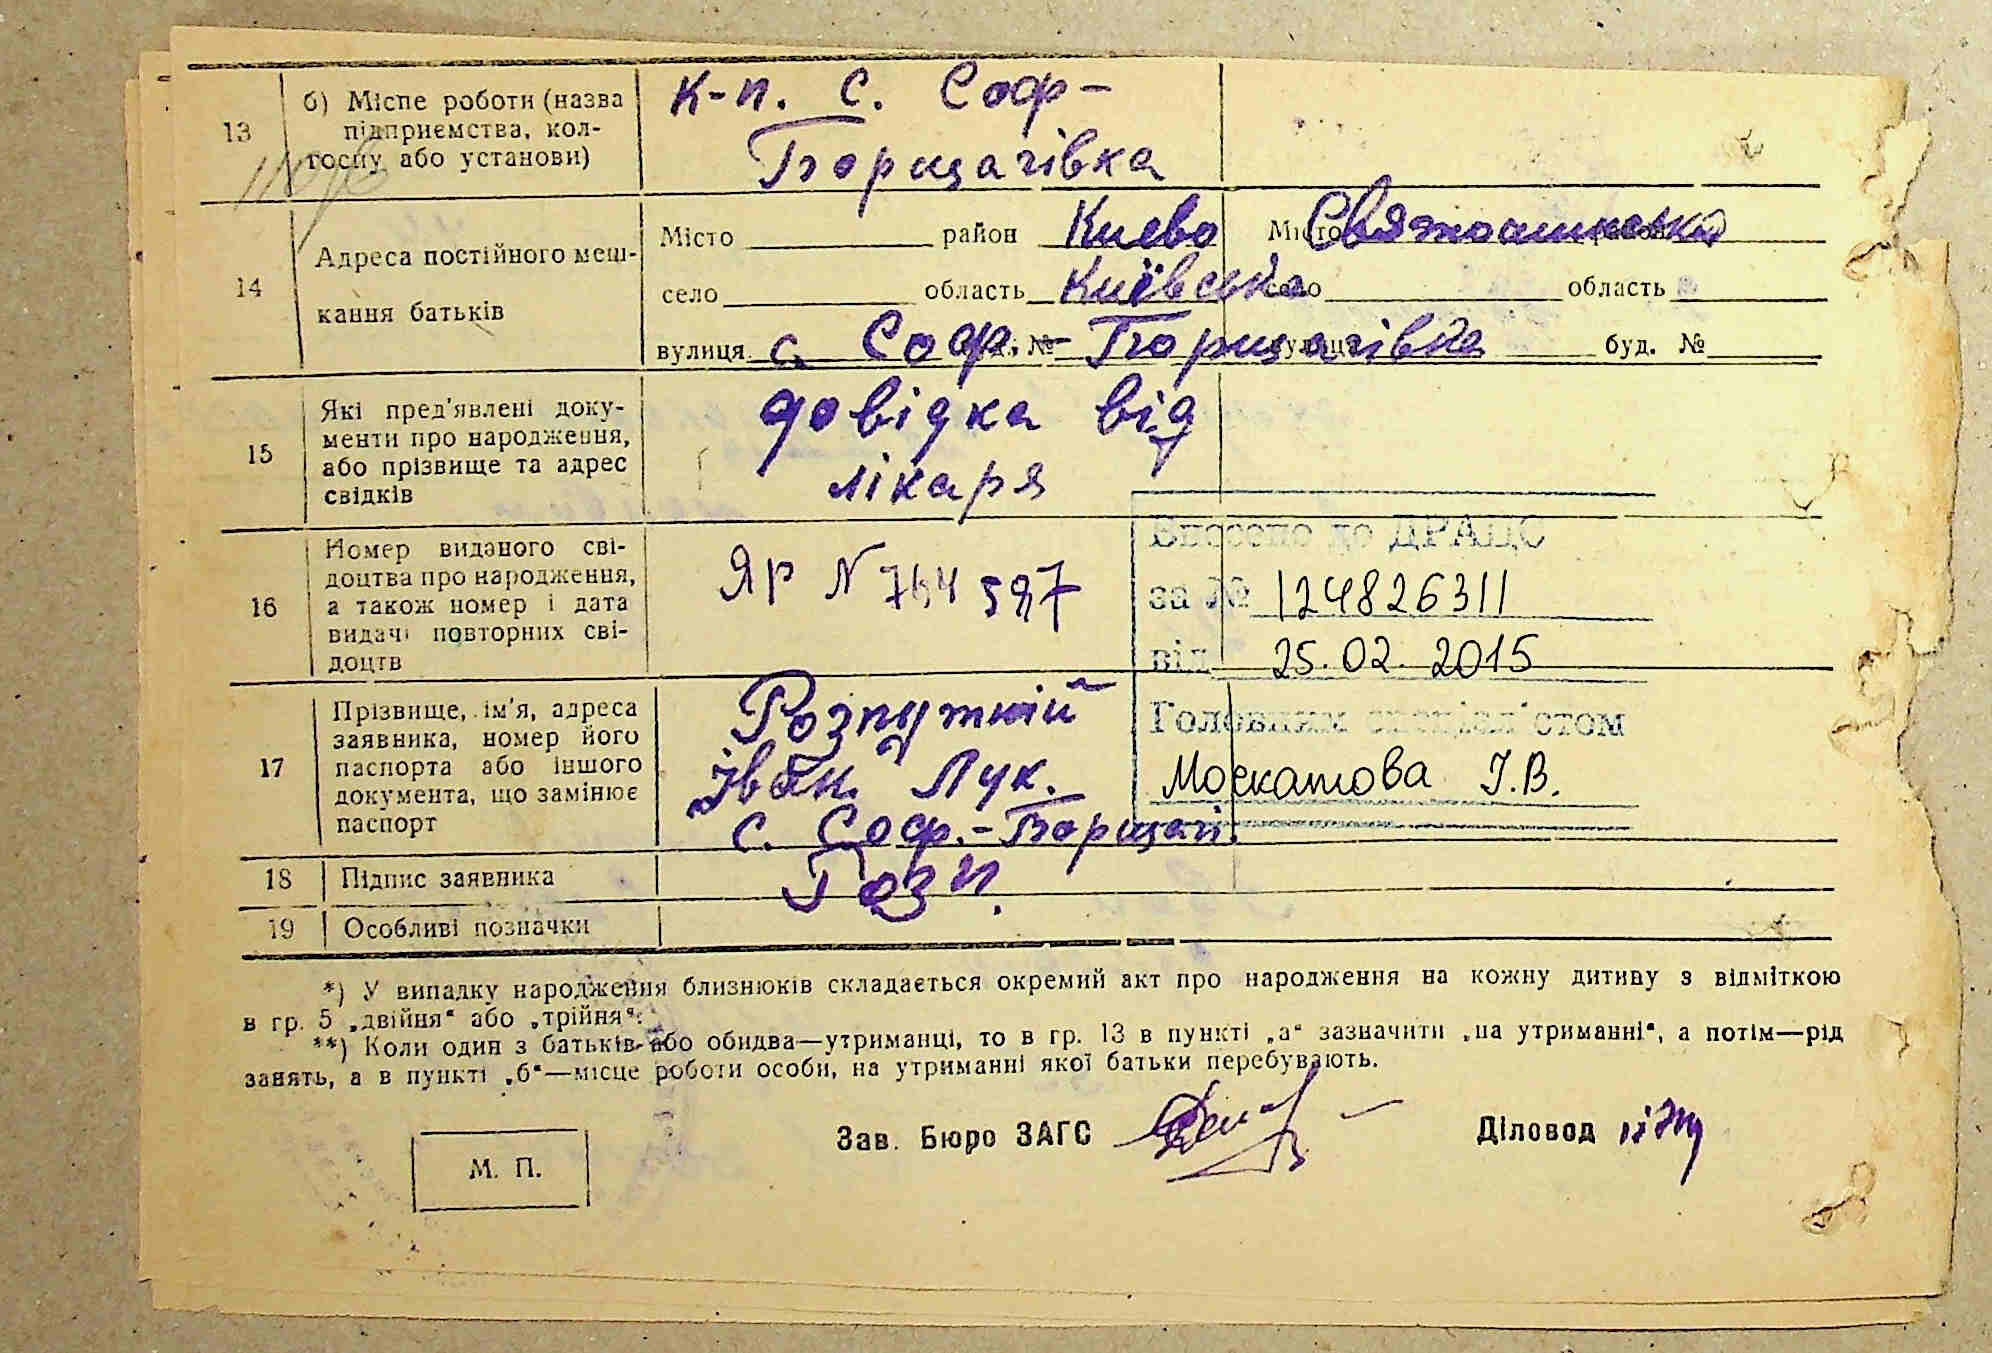 13
б) Місце роботи (назва
підприємства, кол-
госпу або установи)
к-п. с. Соф-
Борщагівка
14
Адреса постійного меш-
кання батьків
Місто район Києво Місто Святошинська
село область Київська село область
вулиця с. Соф. № - Борщагівка вулиця буд. №
15
Які пред'явлені доку-
менти про народження,
або прізвище та адрес
свідків
довідка від
лікаря
16
Номер виданого сві-
доцтва про народження,
а також номер і дата
видачі повторних сві-
доцтв
ЯР N 764597
Внесено до ДРАЦС
за № 124826311
від 25.02.2015
Головним спеціалістом
Москатова І.В.
17
Прізвище, ім'я, адреса
заявника, номер його
паспорта або іншого
документа, що замінює
паспорт
Розпутній
Іван Лук.
с. Соф.-Борщагі.
18
Підпис заявника
Розп.
19
Особливі позначки
*) У випадку народження близнюків складається окремий акт про народження на кожну дитину з відміткою
в гр. 5 „двійня“ або „трійня“.
**) Коли один з батьків або обидва—утриманці, то в гр. 13 в пункті „а“ зазначити „на утриманні“, а потім—рід
занять, а в пункті „б“—місце роботи особи, на утриманні якої батьки перебувають.
М. П.
Зав. Бюро ЗАГС
Діловод